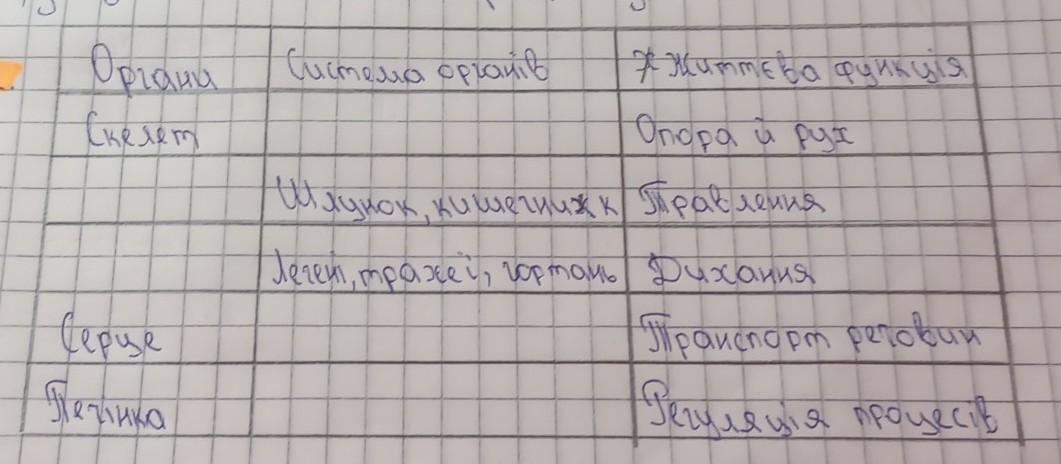 Органи Система органів Життєва функція
Скелет Опора й рух
Шлунок, кишечник Травлення
Легені, трахеї, гортань Дихання
Серце Транспорт речовин
Печінка Регуляція процесів